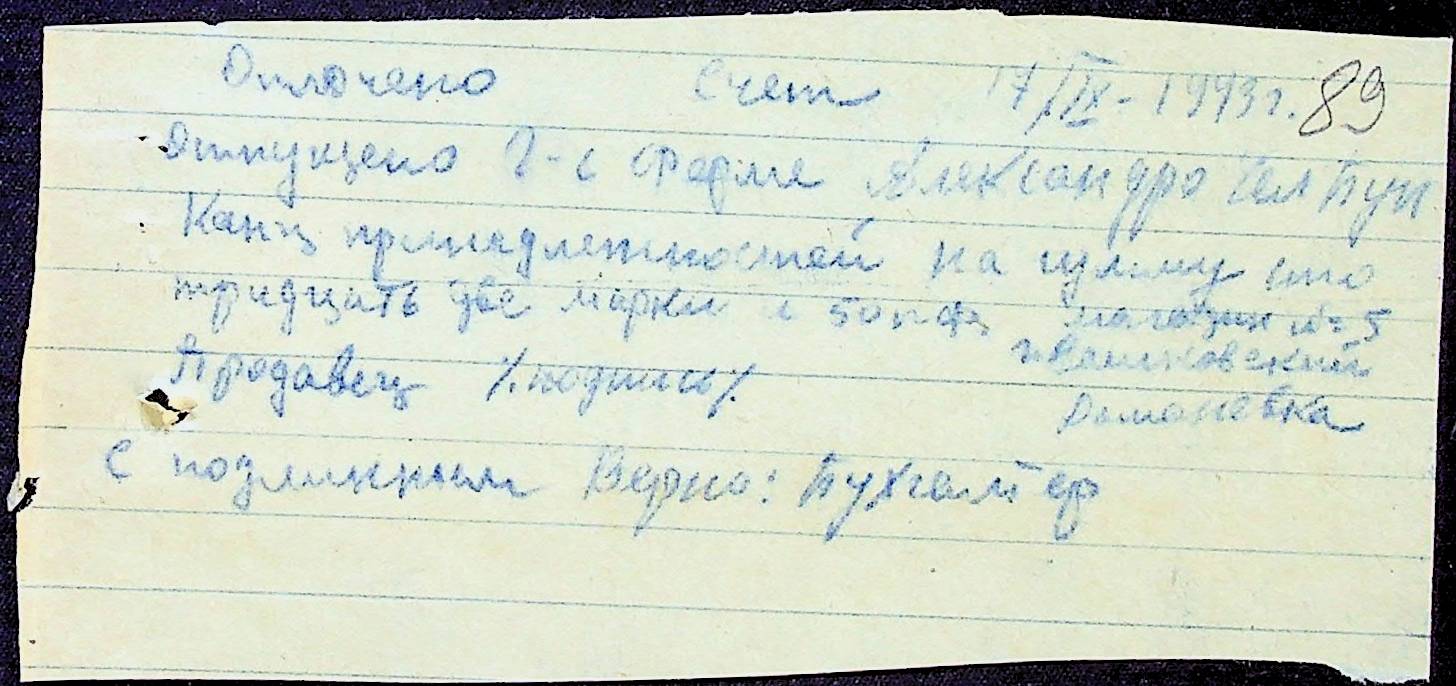 Оплочено Счет 17/IX-1943 г. 89
Отпущено 2-ь Ферме Александро
Канц принадлежностей на сумму сто
тридцать две марки и 50 пф магазин № 5
Ивашковский
Доманевка
Продавец /.подпись/.
С подлинным Верно: Бухгалтер